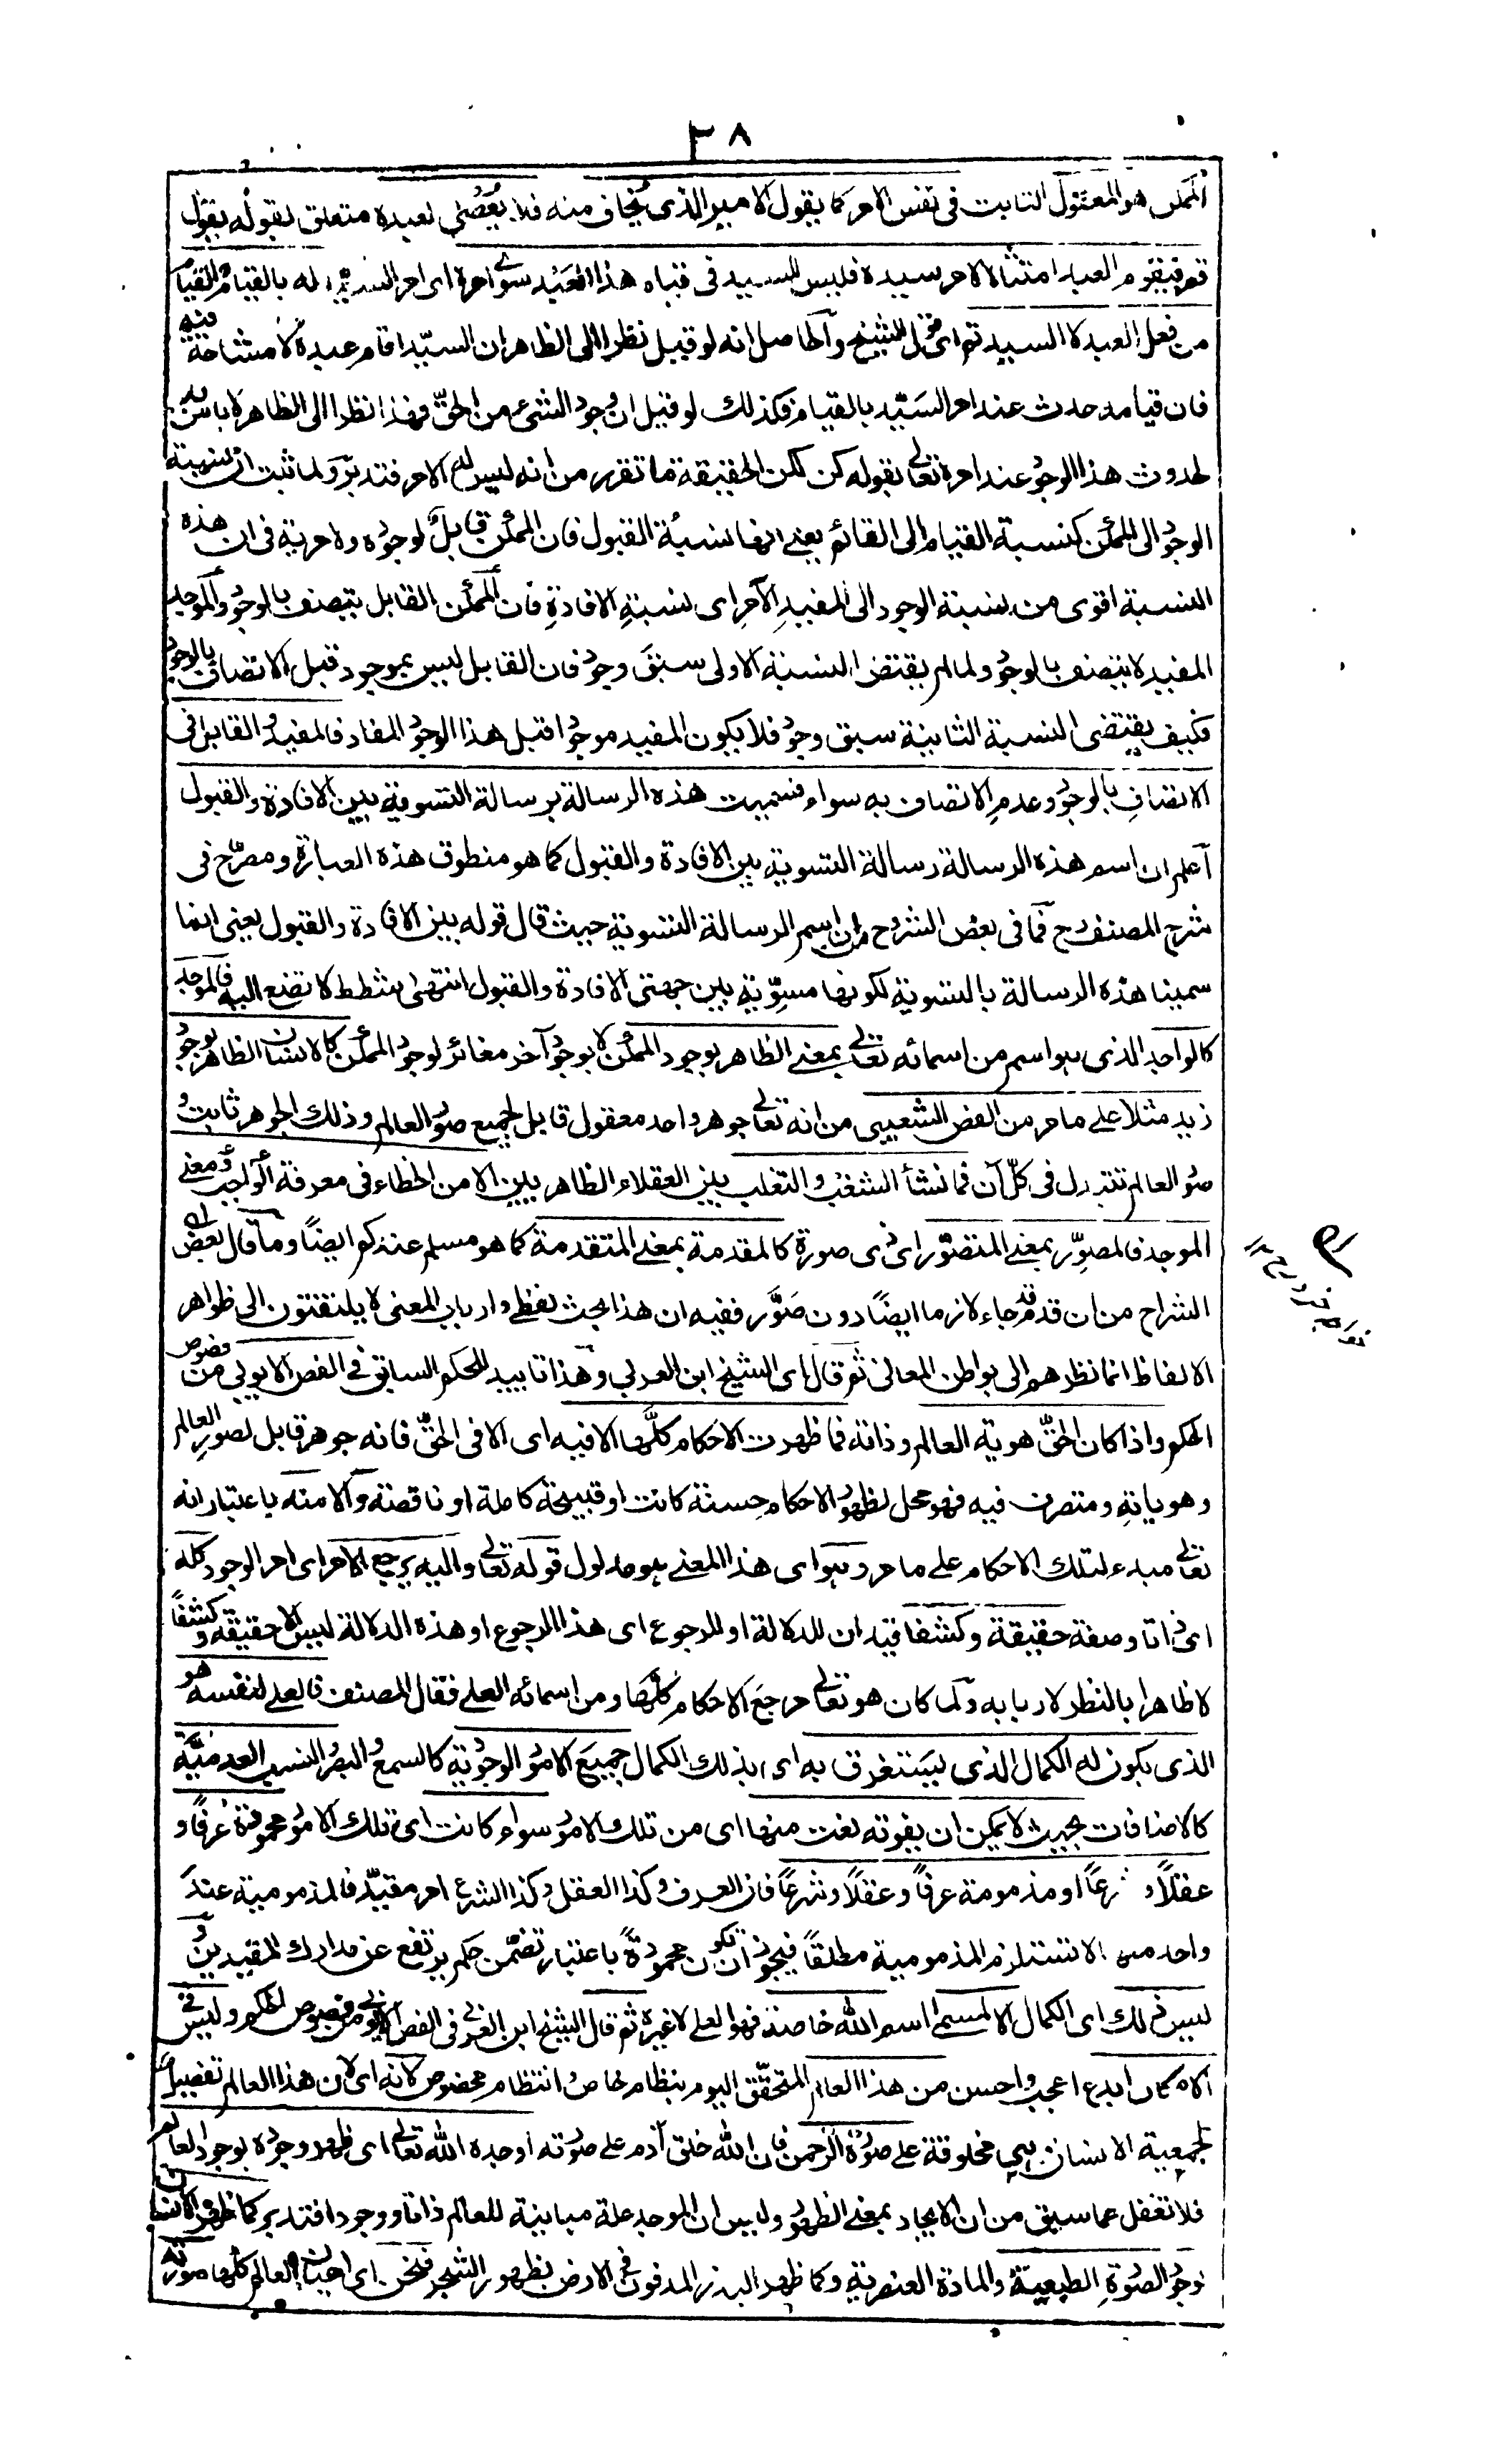 ٣٨
الممكن هو المعقول الثابت في نفس الامر كما يقول الامير الذي يخاف منه فلا يعصى لعبده متعلق بقوله يقول
قم فيقوم العبد امتثالا لامر سيده فليس للسيد في قيام هذا العبد سوى امره اى امر السيد له بالقيام والقيام
من فعل العبد لا السيد تم اى قول الشيخ والحاصل انه لو قيل نظرا الى الظاهر ان السيّد اقام عبده لا مشاحة فيه
فان قيامه حدث عند امر السيّد بالقيام فكذلك لو قيل ان وجود الشئ من الحقّ فهذا نظرا الى الظاهر لا باس به
لحدوث هذا الوجود عند امره تعالى بقوله كن لكن الحقيقة ما تقرر من انه ليس له الا الامر فتدبّر ولما ثبت ان نسبة
الوجود الى الممكن كنسبة القيام الى القائم يعني انها نسبة القبول فان الممكن قابل لوجوده ولا مرية في ان هذه
النسبة اقوى من نسبة الوجود الى المفيد الآمر اى نسبة الافادة فان الممكن القابل يتصف بالوجود والموجد
المفيد لا يتصف بالوجود ولما لم يقتض النسبة الاولى سبق وجود فان القابل ليس بموجود قبل الاتصاف بالوجود
فكيف يقتضى النسبة الثانية سبق وجود فلا يكون المفيد موجودا قبل هذا الوجود المفاد فالمفيد والقابل في
الاتصاف بالوجود وعدم الاتصاف به سواء فسميت هذه الرسالة برسالة التسوية بين الافادة والقبول
اعلم ان اسم هذه الرسالة رسالة التسوية بين الافادة والقبول كما هو منطوق هذه العبارة ومصرّح في
شرح المصنف رح فما في بعض الشروح من ان اسم الرسالة التسوية حيث قال قوله بين الافادة والقبول يعنى انما
سمينا هذه الرسالة بالتسوية لكونها مسوّية بين جهتي الافادة والقبول انتهى شطط لا تصغ اليه فالموجد
كالواحد الذي هو اسم من اسمائه تعالى بمعنى الظاهر بوجود الممكن لا بوجود آخر مغائر لوجود الممكن كالانسان الظاهر بوجود
زيد مثلا على ما مر من الفص الشعيبى من انه تعالى جوهر واحد معقول قابل لجميع صور العالم وذلك الجوهر ثابت و
صور العالم تتبدل في كل آن فما نشأ الشغب والتغلب بين العقلاء الظاهريين الا من الخطاء في معرفة الواجب ومعنى
الموجد فالمصوّر بمعنى المتصوّر اى ذى صورة كالمقدمة بمعنى المتقدمة كما هو مسلم عندكم ايضاً وما قال بعض
الشراح من ان قدم قد جاء لازما ايضاً دون صوّر ففيه ان هذا بحث لفظى وارباب المعنى لا يلتفتون الى ظواهر
الالفاظ انما نظرهم الى بواطن المعانى ثم قال اى الشيخ ابن العربي وهذا تاييد للحكم السابق في الفص الايوبي من فصوص
الحكم واذا كان الحقّ هوية العالم وذاته فما ظهرت الاحكام كلّها الا فيه اى الا في الحقّ فانه جوهر قابل لصور العالم
وهوياته ومتصرف فيه فهو محل لظهور الاحكام حسنة كانت او قبيحة كاملة او ناقصة والا منه باعتبار انه
تعالى مبدء لتلك الاحكام على ما مر وهو اى هذا المعنى هو مدلول قوله تعالى واليه يرجع الامر اى امر الوجود كله
اى ذاتا وصفة حقيقة وكشفا قيد ان للدلالة او للرجوع اى هذا الرجوع او هذه الدلالة ليس الا حقيقة وكشفا
لا ظاهرا بالنظر لاربابه ولما كان هو تعالى مرجع الاحكام كلّها ومن اسمائه العلى فقال المصنف فالعلى لنفسه هو
الذي يكون له الكمال الذي يستغرق به اى بذلك الكمال جميع الامور الوجودية كالسمع والبصر والنسب العدمية
كالاضافات بحيث لا يمكن ان يفوته نعت منها اى من تلك الامور سواء كانت اى تلك الامور محمودة عرفاً و
عقلاً وشرعاً او مذمومة عرفاً وعقلاً وشرعاً فان العرف وكذا العقل وكذا الشرع امر مقيّد فالمذمومية عند
واحد منها لا تستلزم المذمومية مطلقاً فيجوز ان تكون محمودةً باعتبار تضمّن حكم يرتفع عن مدارك المقيدين و
ليس ذلك اى الكمال الا لمسمى اسم الله خاصة فهو العلى لا غيره ثم قال الشيخ ابن العربي في الفص الايوبي من فصوص الحكم وليس في
الامكان ابدع اعجب واحسن من هذا العالم المتحقّق اليوم بنظام خاص وانتظام مخصوص لانه اى لان هذا العالم تفصيل
لجمعية الانسان هي مخلوقة على صورة الرحمن فان الله خلق آدم على صورته اوجده الله تعالى اى ظهر وجوده بوجود العالم
فلا تغفل عما سبق من ان الايجاد بمعنى الظهور وليس ان الموجد علة مباينة للعالم ذاتا ووجودا فتدبر كما ظهر الانسان
بوجود الصورة الطبعية والمادة العنصرية وكما ظهر البذر المدفون في الارض بظهور الشجر فنحن اى اعيان العالم كلها صورته